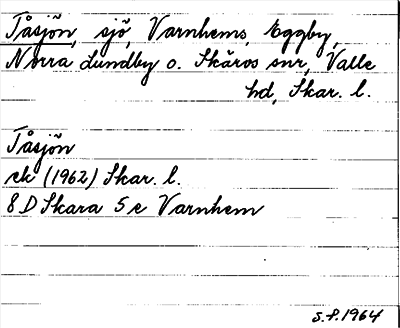 Tåsjön, sjö, Varnhems, Eggby,
Norra Lundby o. Skärvs snr, Valle
hd, Skar. l.
Tåsjön
ek (1962) Skar. l.
8 D Skara 5 e Varnhem
S.P. 1964